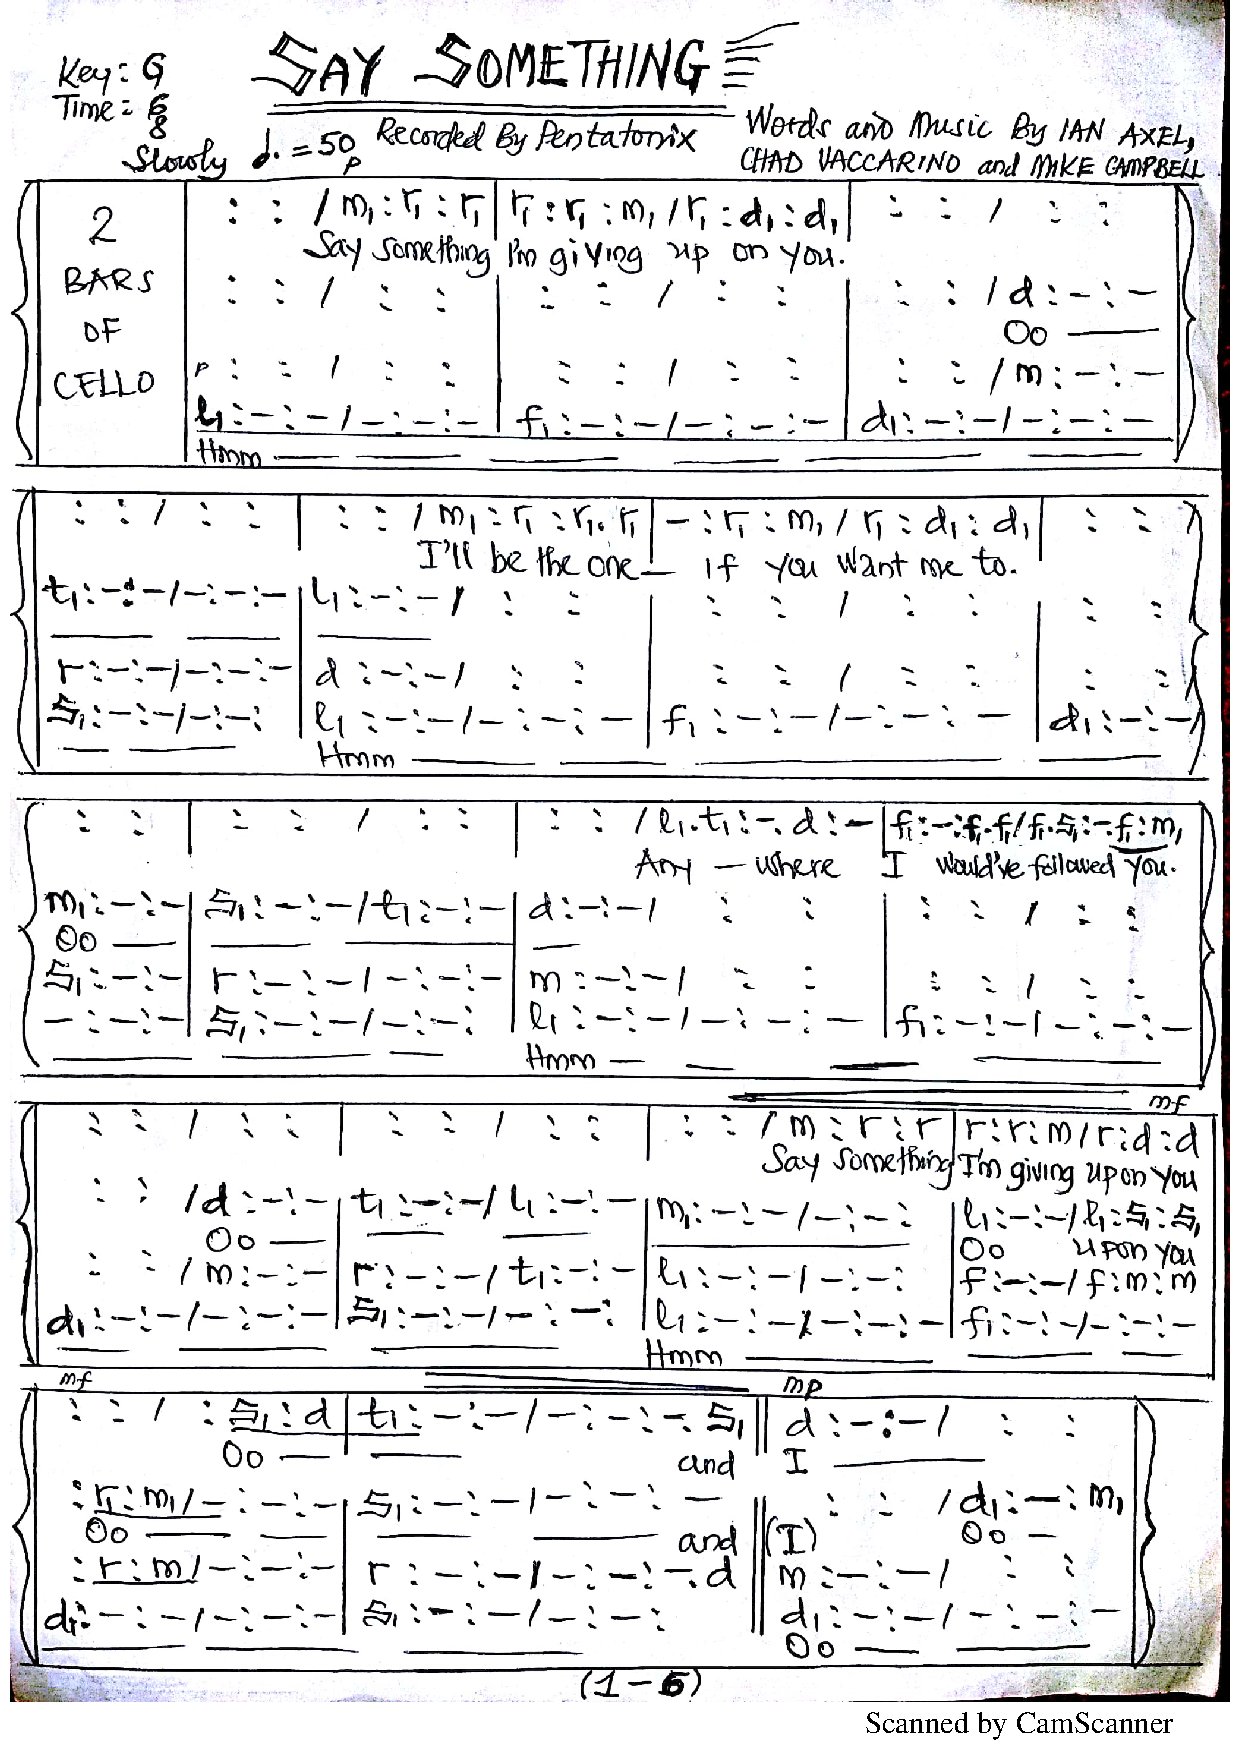 Key: G
SAY SOMETHING
Time: 6/8
Slowly ♩. = 50 Recorded By Pentatonix
Words and Music By IAN AXEL,
CHAD VACCARINO and MIKE CAMPBELL
p
2
BARS
OF
CELLO
: : / m₁ : r₁ : r₁ | r₁ : r₁ : m₁ / r₁ : d₁ : d₁ | : : / : :
Say something I'm giving up on you.
: : / : : | : : / : : | : : / d : – : –
Oo
p : : / : : | : : / : : | : : / m : – : –
l₁ : – : – / – : – : – | f₁ : – : – / – : – : – | d₁ : – : – / – : – : –
Hmm
: : / : : | : : / m₁ : r₁ : r₁. r₁ | – : r₁ : m₁ / r₁ : d₁ : d₁ | : : /
I'll be the one – if you want me to.
t₁ : – : – / – : – : – | l₁ : – : – / : : | : : / : : | : :
r : – : – / – : – : – | d : – : – / : : | : : / : : | : : /
s₁ : – : – / – : – : | l₁ : – : – / – : – : – | f₁ : – : – / – : – : – | d₁ : – : – /
Hmm
: : | : : / : : | : : / l₁. t₁ : –. d : – | f₁ : – : f₁. f₁ / f₁. s₁ : –. f₁ : m₁
Any – where I would've followed you.
m₁ : – : – | s₁ : – : – / t₁ : – : – | d : – : – / : : | : : / : :
Oo
s₁ : – : – | r : – : – / – : – : – | m : – : – / : : | : : / : :
– : – : – | s₁ : – : – / – : – : | l₁ : – : – / – : – : – | f₁ : – : – / – : – : –
Hmm
mf
: : / : : | : : / : : | : : / m : r : r | r : r : m / r : d : d
Say something I'm giving up on you
: : / d : – : – | t₁ : – : – / l₁ : – : – | m₁ : – : – / – : – : | l₁ : – : – / l₁ : s₁ : s₁
Oo Oo up on you
: : / m : – : – | r : – : – / t₁ : – : – | l₁ : – : – / – : – : | f : – : – / f : m : m
d₁ : – : – / – : – : – | s₁ : – : – / – : – : | l₁ : – : – / – : – : – | f₁ : – : – / – : – : –
Hmm
mf mp
: : / : s₁ : d | t₁ : – : – / – : – : –. s₁ || d : – : – / : :
Oo and I
: r₁ : m₁ / – : – : – | s₁ : – : – / – : – : – || : : / d₁ : – : m₁
Oo and (I) Oo
: r : m / – : – : – | r : – : – / – : – : –. d || m : – : – / : :
d₁ : – : – / – : – : – | s₁ : – : – / – : – : || d₁ : – : – / – : – : –
Oo
(1-6)
Scanned by CamScanner